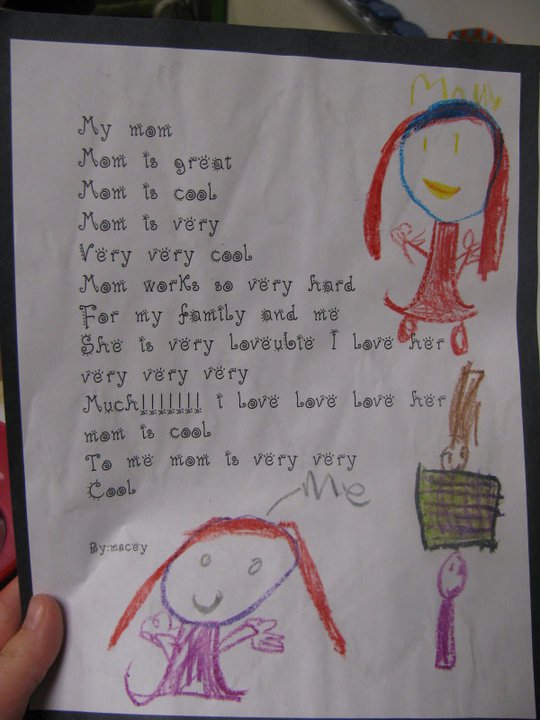 Mom
My mom
Mom is great
Mom is cool
Mom is very
Very very cool
Mom works so very hard
For my family and me
She is very loveublie I love her
very very very
Much!!!!!!! i love love love her
mom is cool
To me mom is very very
Cool
Me
By:macey